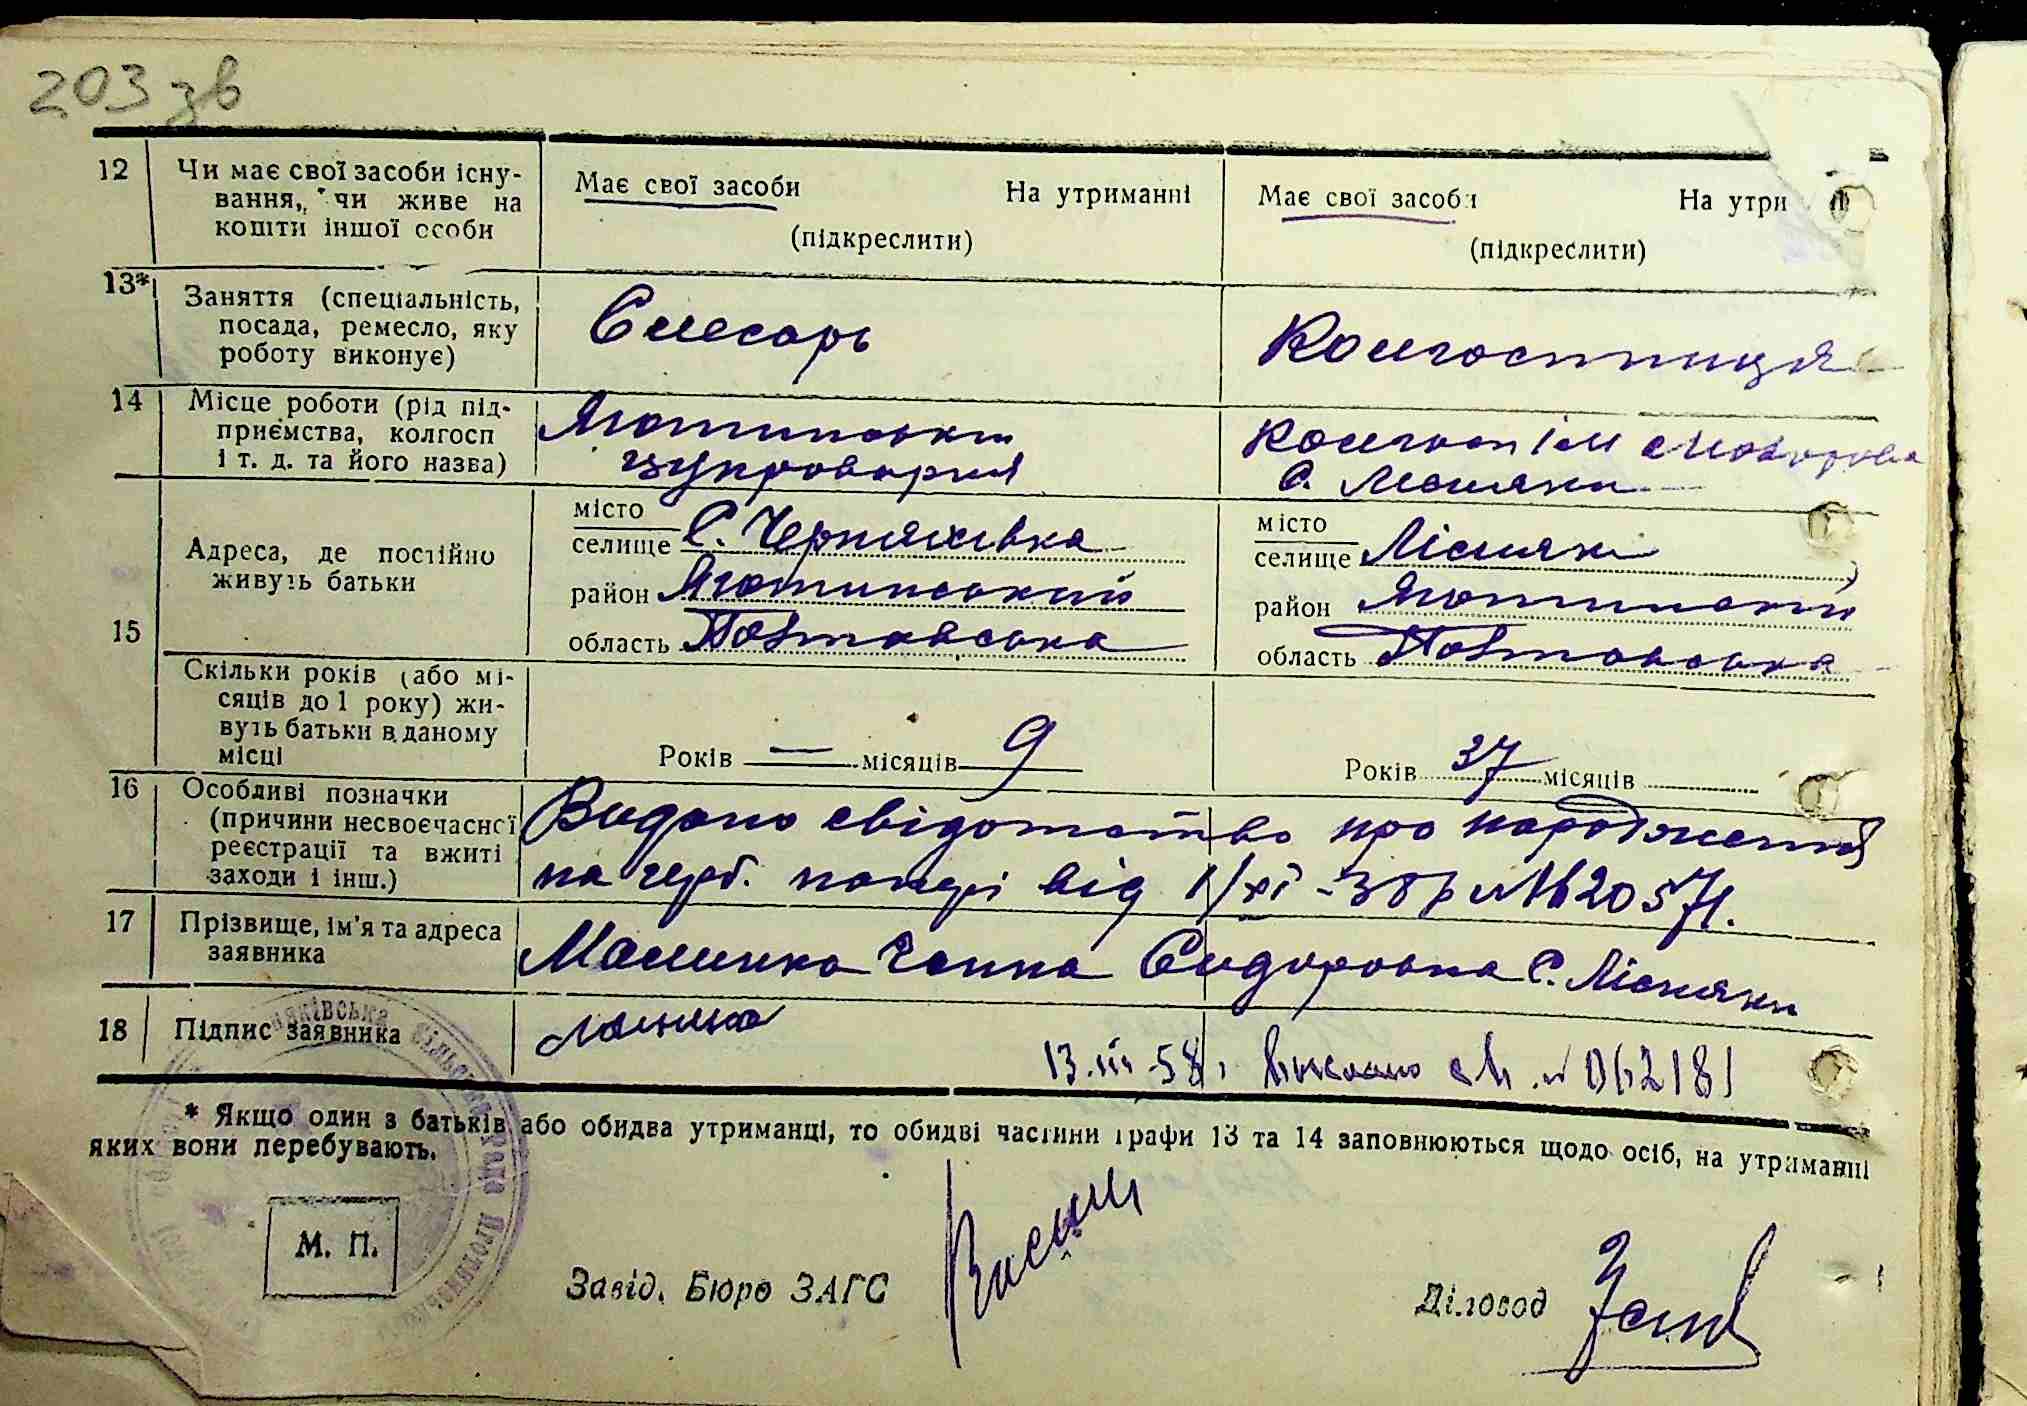 203 зв
12 Чи має свої засоби існу-
вання, чи живе на
кошти іншої особи
Має свої засоби На утриманні
(підкреслити)
Має свої засоби На утри
(підкреслити)
13* Заняття (спеціальність,
посада, ремесло, яку
роботу виконує)
Слесарь
Колгоспниця
14 Місце роботи (рід під-
приємства, колгосп
і т. д. та його назва)
Яготинська
цукроварня
Колгосп ім
С. Лісняки
15 Адреса, де постійно
живуть батьки
місто
селище С. Черняхівка
район Яготинський
область Полтавська
місто
селище Лісняки
район Яготинский
область Полтавська
Скільки років (або мі-
сяців до 1 року) жи-
вуть батьки в даному
місці
Років — місяців 9
Років 37 місяців
16 Особливі позначки
(причини несвоєчасної
реєстрації та вжиті
заходи і інш.)
Видано свідотство про народження
на герб. папері від 1/XI-38 р № 62057
17 Прізвище, ім'я та адреса
заявника
Малинка Ганна Сидоровна С. Лісняки
18 Підпис заявника
13.III-58 св. № 062181
* Якщо один з батьків або обидва утриманці, то обидві частини графи 13 та 14 заповнюються щодо осіб, на утриманні
яких вони перебувають.
М. П.
Завід. Бюро ЗАГС
Діловод
няківська сільська Рада Яготинськ